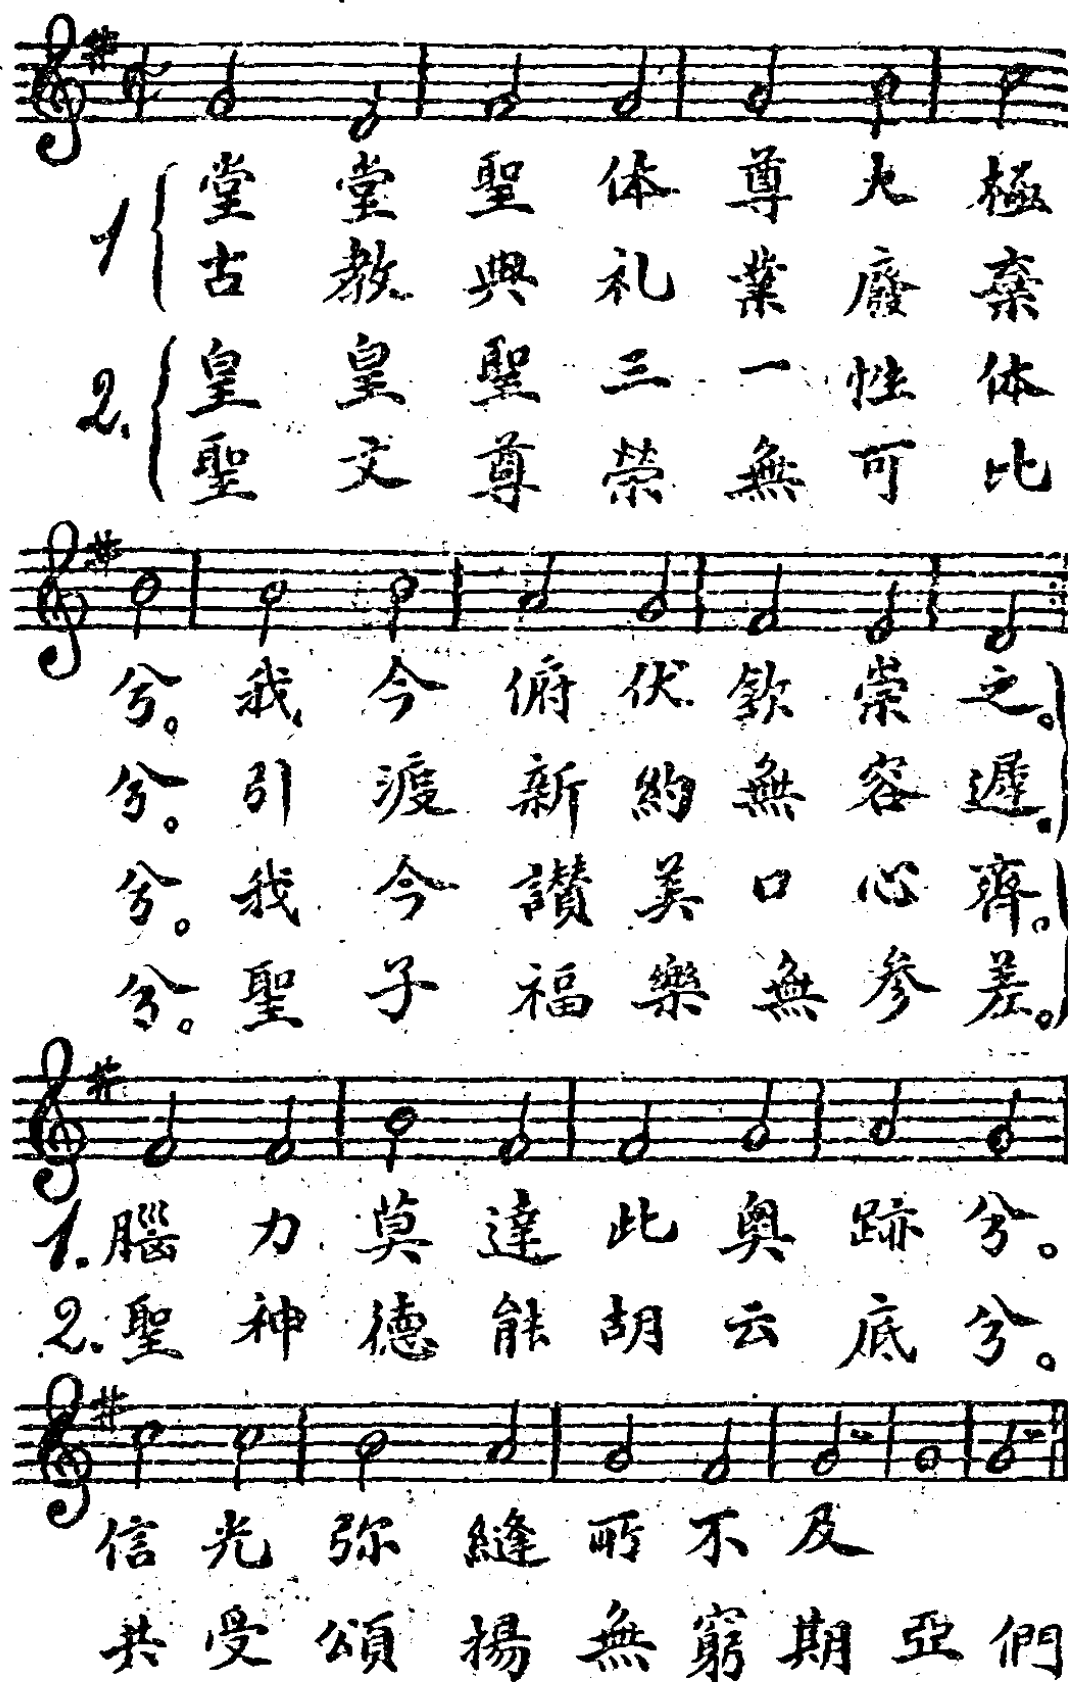 1 堂堂聖体尊大極
古教典礼業廢棄
2. 皇皇聖三一性体
聖文尊榮無可比
兮。我今俯伏欽崇之。
兮。引渡新約無容遲。
兮。我今讚美口心齊。
兮。聖子福樂無參差。
1. 腦力莫達此奥跡兮。
2. 聖神德能胡云底兮。
信光弥縫所不及
共受頌揚無窮期亞們